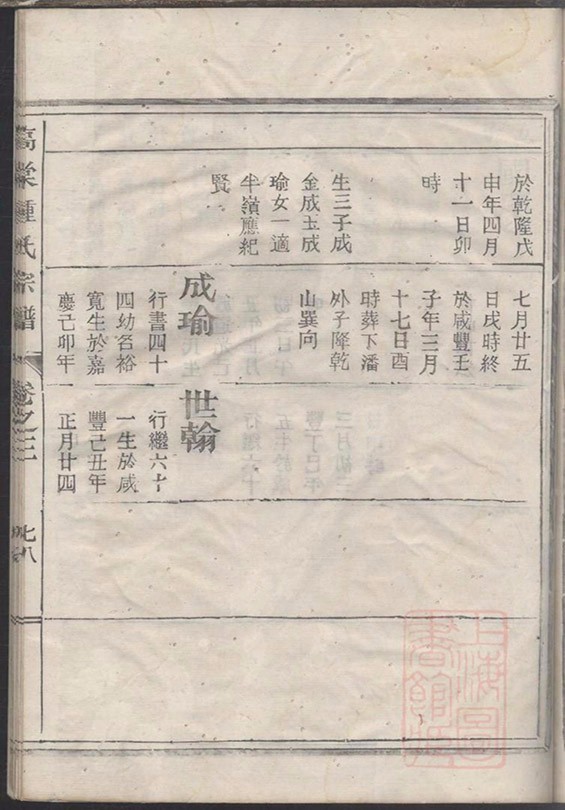 於乾隆戊
申年四月
十一日卯
時
生三子成
金成玉成
瑜女一適
半嶺應紀
賢
七月廿五
日戌時終
於咸豐壬
子年三月
十七日酉
時葬下潘
外子隆乾
山巽向
成瑜
行書四十
四幼名裕
寬生於嘉
慶己卯年
世翰
行繼六十
一生於咸
豐己丑年
正月廿四
高棠鍾氏宗譜
卷之三
七八
上海圖
書館藏